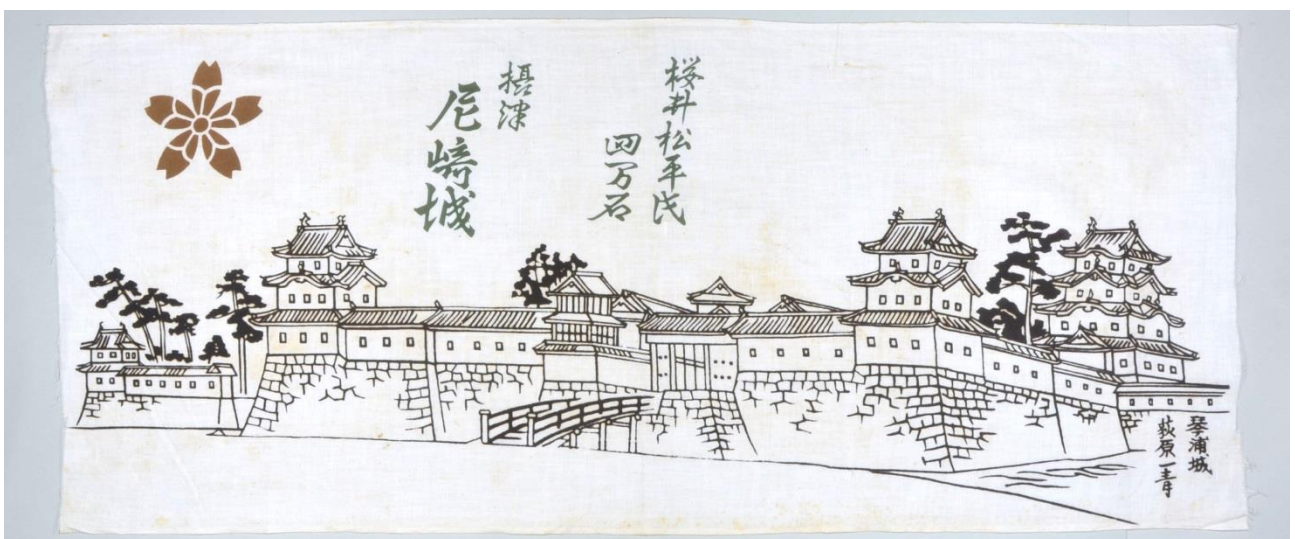 桜井松平氏
四万石
摂津
尼崎城
琴浦城
荻原一青